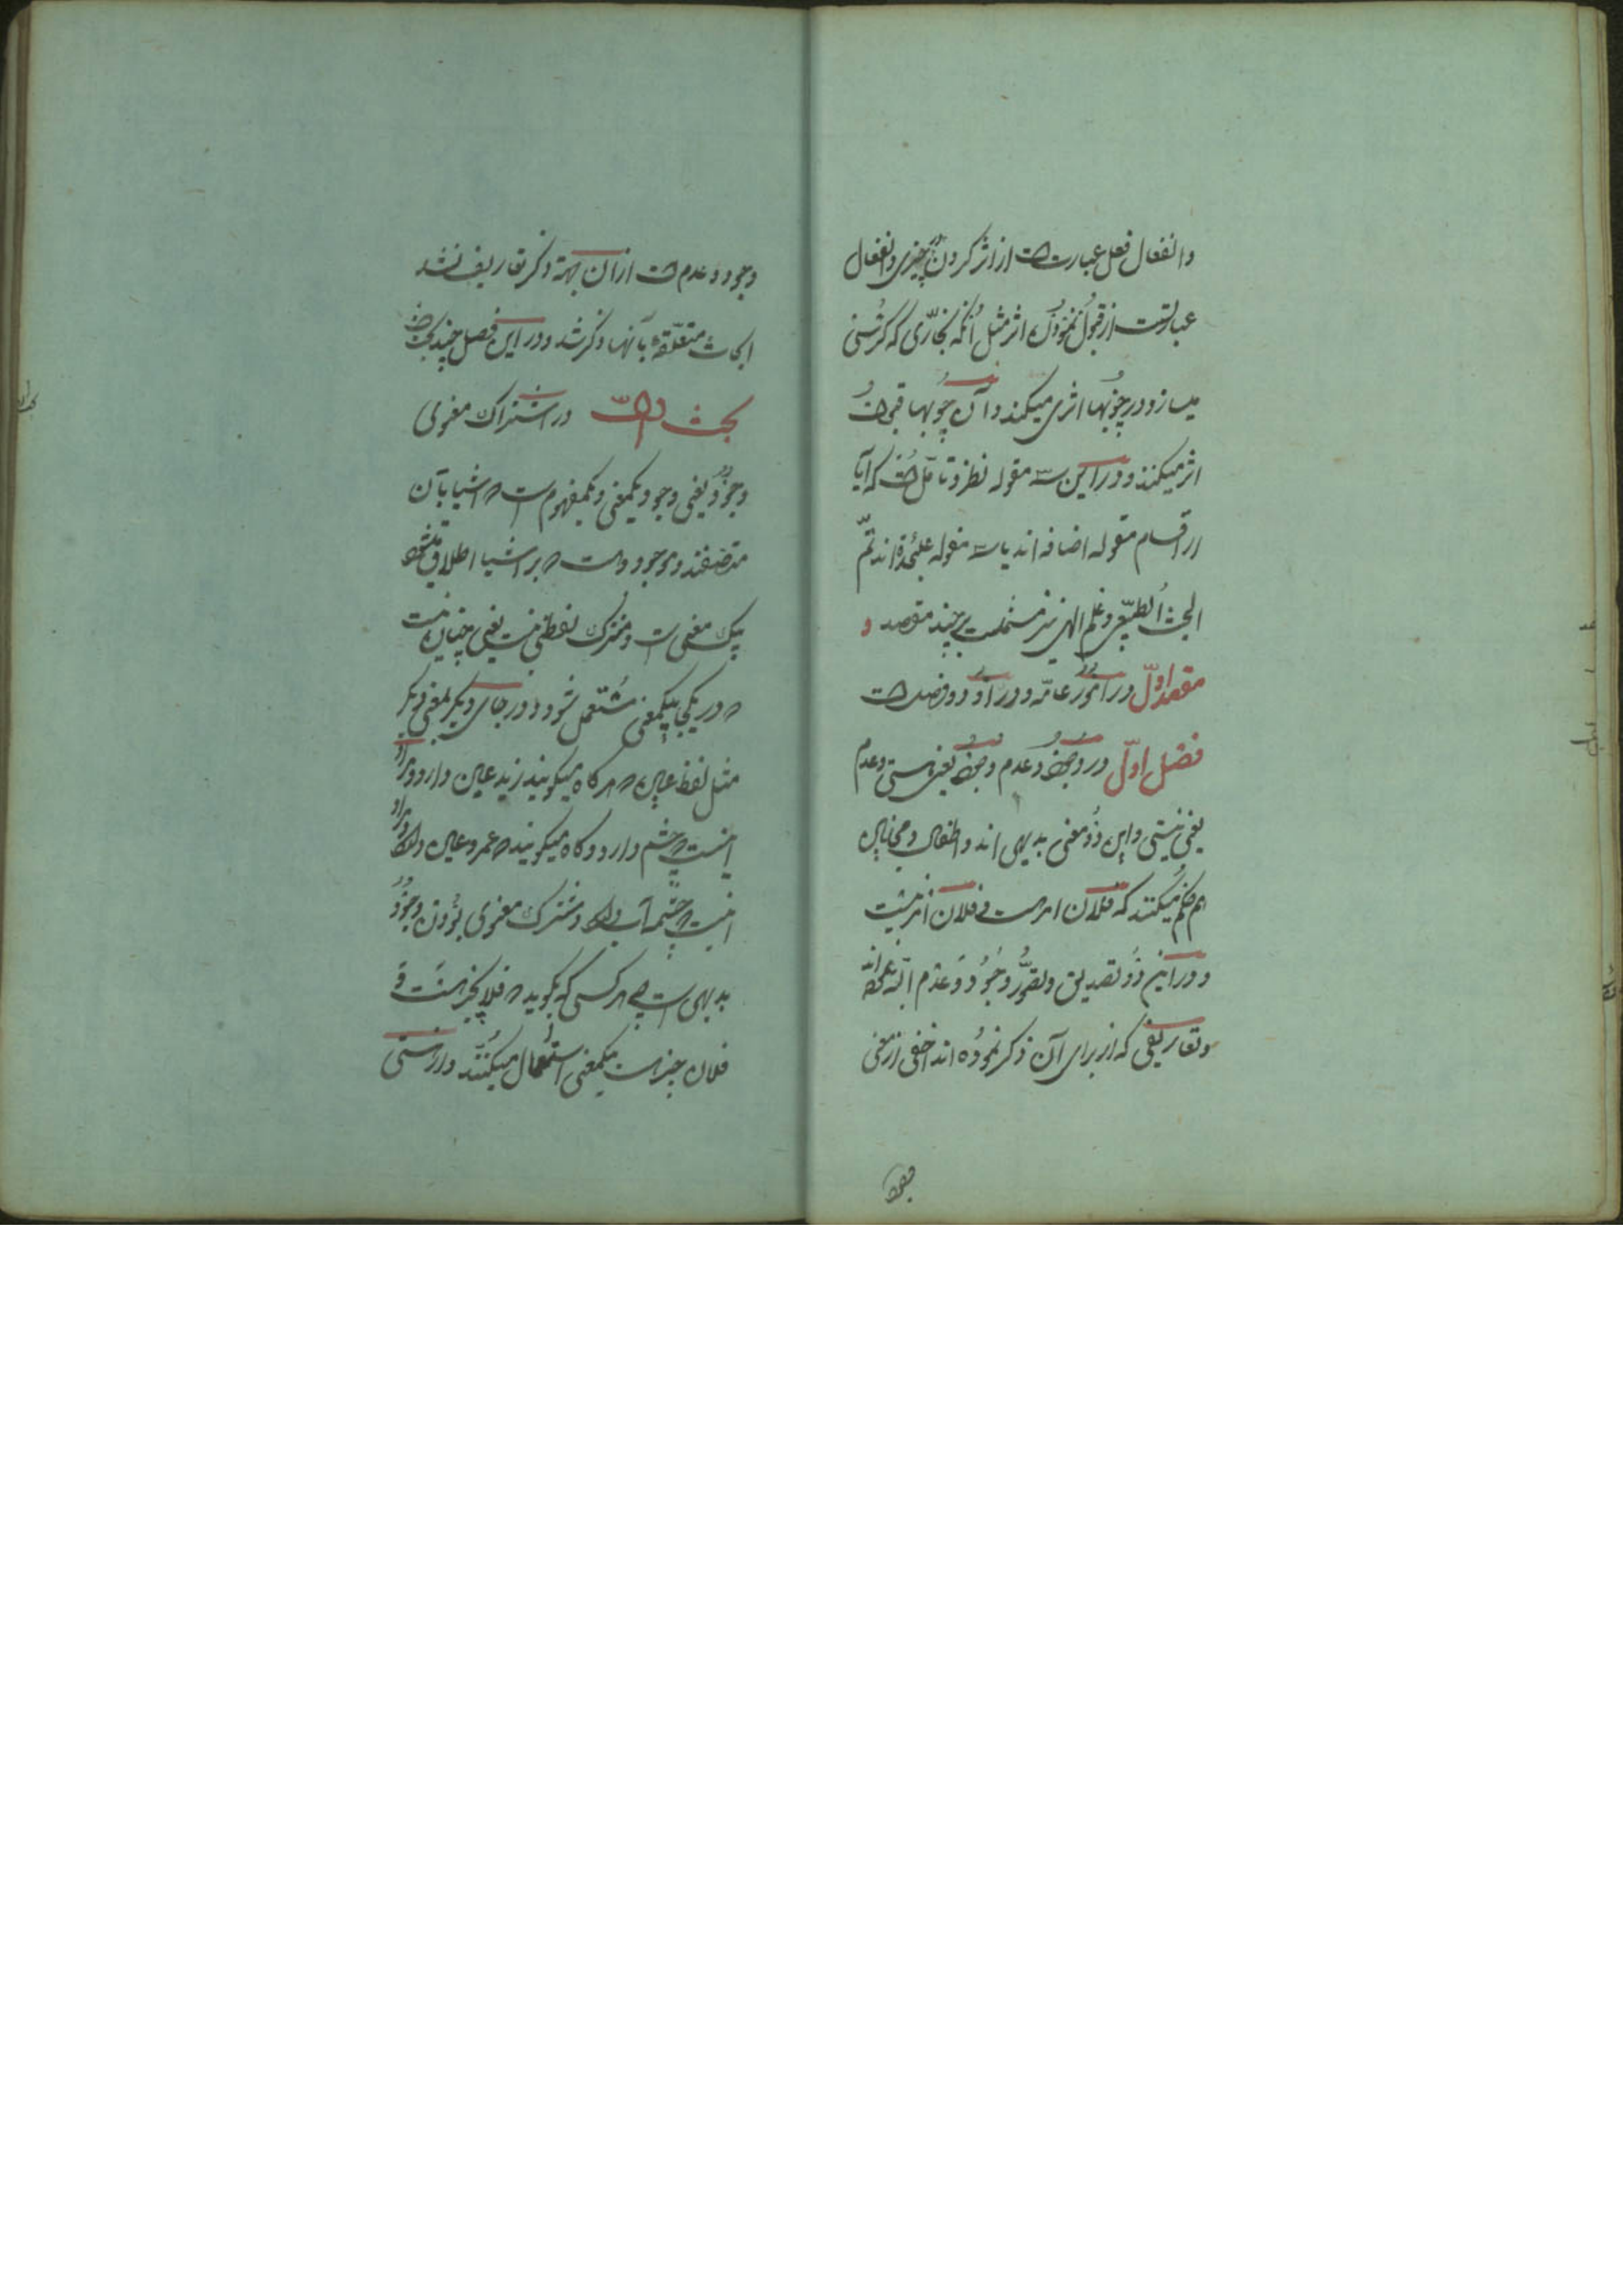 وانفعال فعل عبارتست از اثر کردن چیزی وانفعال
عبارتست از قبول نمودن اثر مثل آنکه نجاری که کرسی
میسازد در چوبها اثری میکند و آن چوبها قبول
اثر میکنند و در این سه مقوله نظر و تامل است که آیا
از اقسام مقوله اضافه اند یا سه مقوله علیحده اند تم
البحث الطبیعی و علم الهی نیز مشتملست بر چند مقصد و
مقصد اول در امور عامه و در او دو فصل است
فصل اول در وجود و عدم وجود یعنی هستی و عدم
یعنی نیستی و این دو معنی بدیهی اند و اطفال و مجانین
هم حکم میکنند که فلان امر هست و فلان امر نیست
و در این دو تصدیق و تصور وجود و عدم البته
و تعاریفی که از برای آن ذکر نموده اند اخفی از معنی
وجود و عدم است از آن جهة ذکر تعاریف نشد
ابحاث متعلقه بآنها ذکر شد و در این فصل چند بحث
بحث اول در اشتراک معنوی
وجود یعنی وجود یکمعنی و یکمفهوم است که اشیا بآن
متصفند و موجود است که بر اشیا اطلاق میشود
بیک معنی است و مشترک لفظی نیست یعنی چنان نیست
که در یکجا بیکمعنی مستعمل شود و در جای دیکر بمعنی دیکر
مثل لفظ عین که هرکاه میکویند زید عین دارد مراد
اینست که چشم دارد و کاه میکویند که عمرو عین دارد مراد
اینست که چشمه آب دارد و مشترک معنوی بودن وجود
بدیهی است چه هر کسی که بکوید که فلانچیز هست و
فلان چیز هست بیکمعنی استعمال میکنند و از هستی